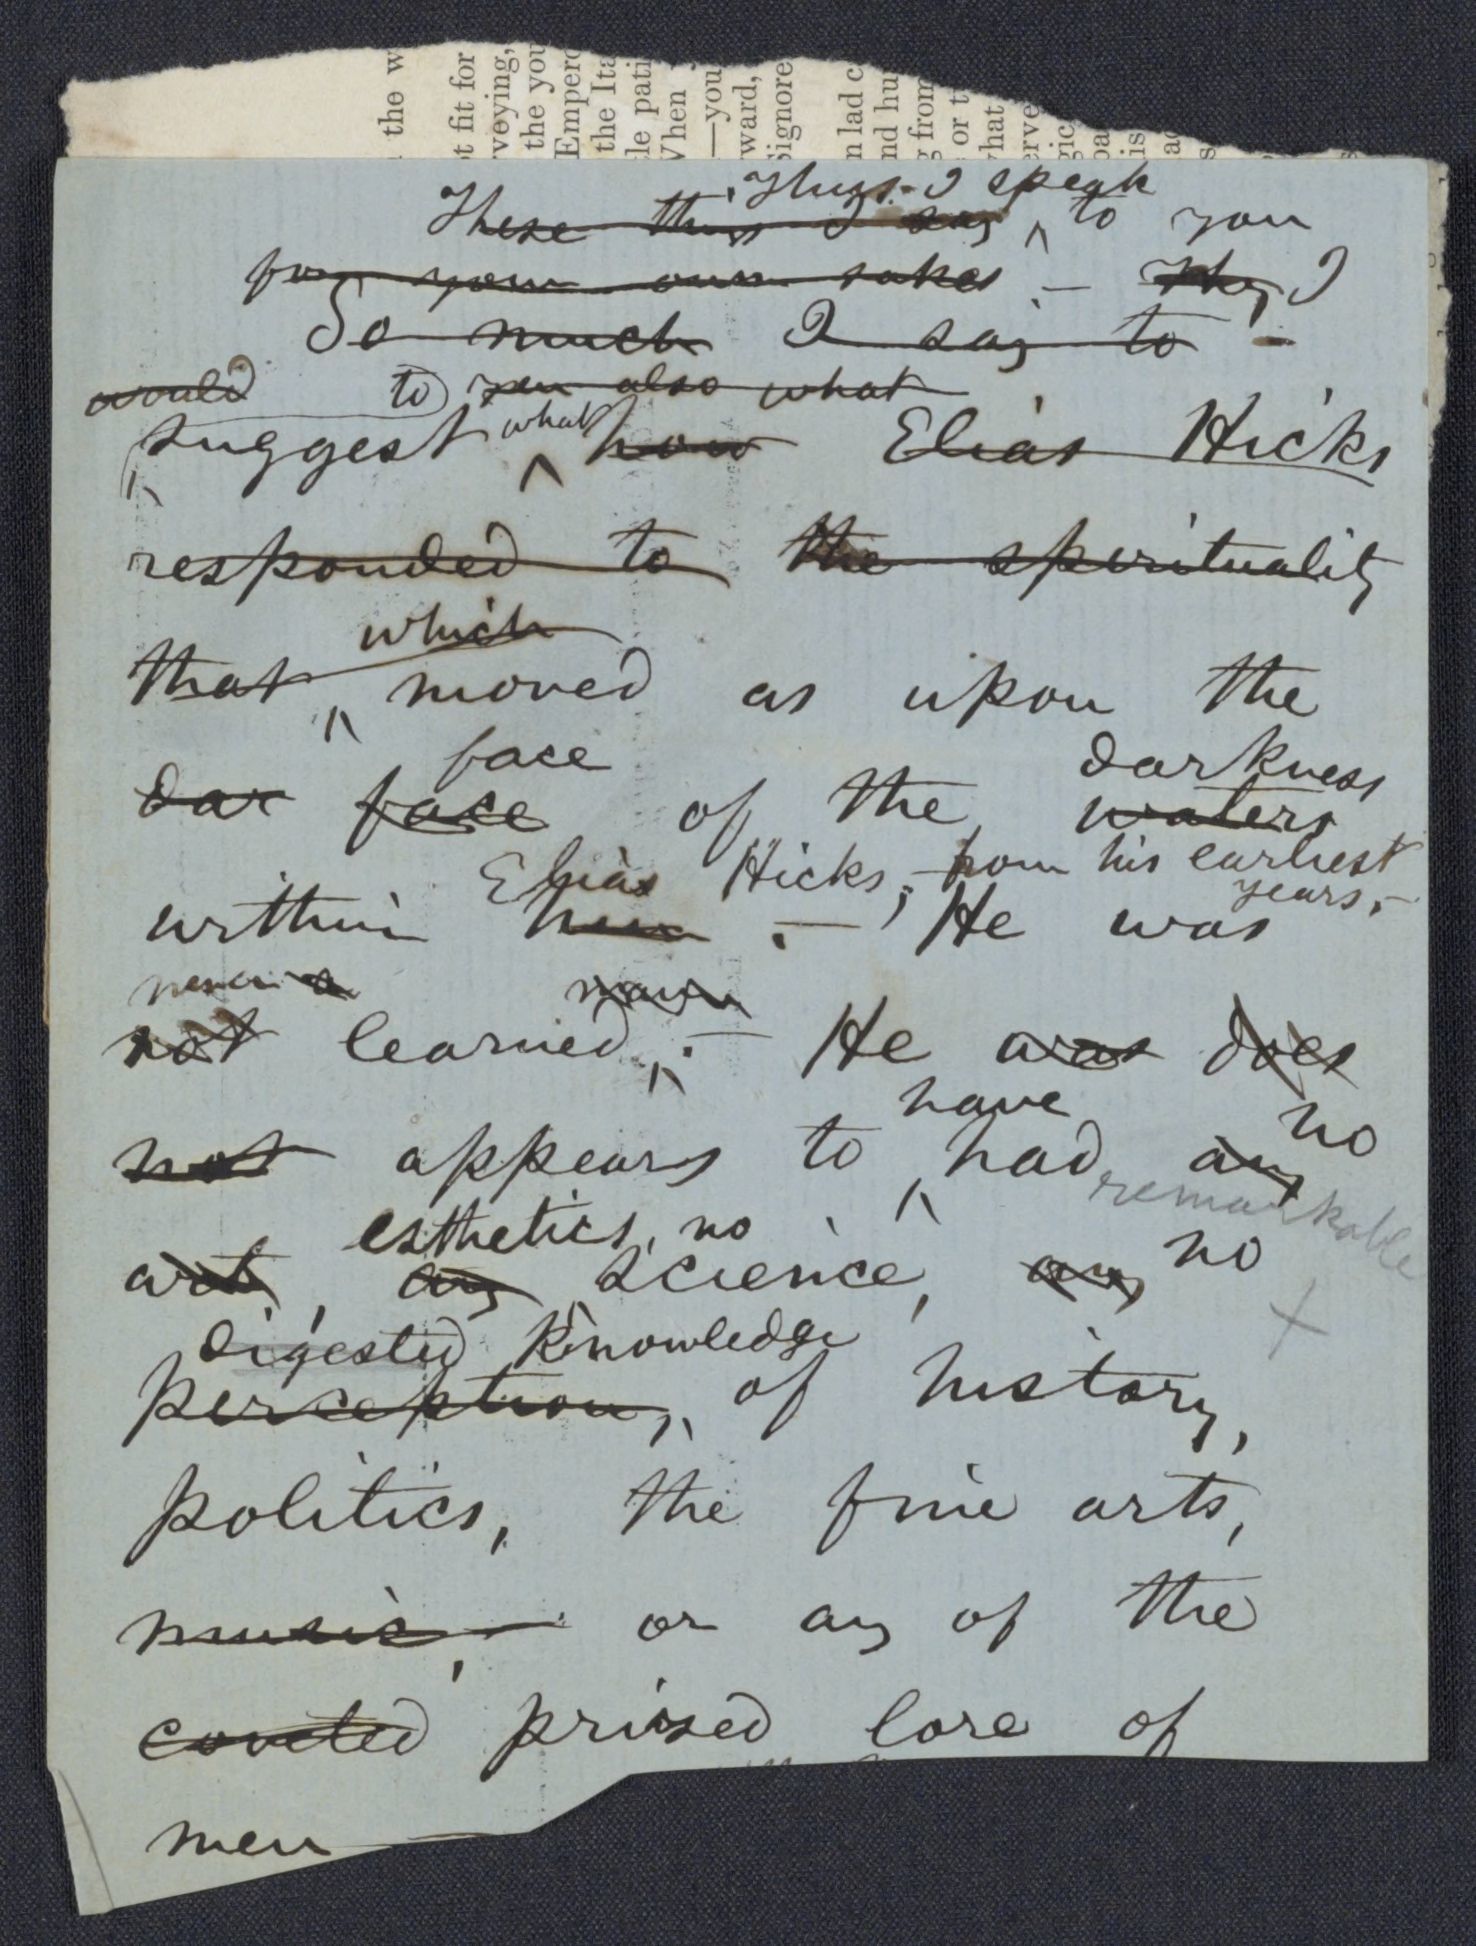 the w
t fit for
rveying,
the you
Empero
the Ita
le pati
When
—you
ward,
Signore
n lad c
nd hu
g from
or t
what
erve
gic
pa
is
Thus I speak
These things I say to you
for your own sakes.— They I
So much I say to —
would to you also what
suggest what how Elias Hicks
responded to the spirituality
which
that moved as upon the
face darkness
dar face of the waters
Elias Hicks, from his earliest
years,—
within him .— He was
never a
not learned, .— He was does
have no
not appears to had any
remarkable
esthetics, no no
art, any science, any
digested Knowledge
perception, of history,
politics, the fine arts,
music,— or any of the
coveted prized lore of
men